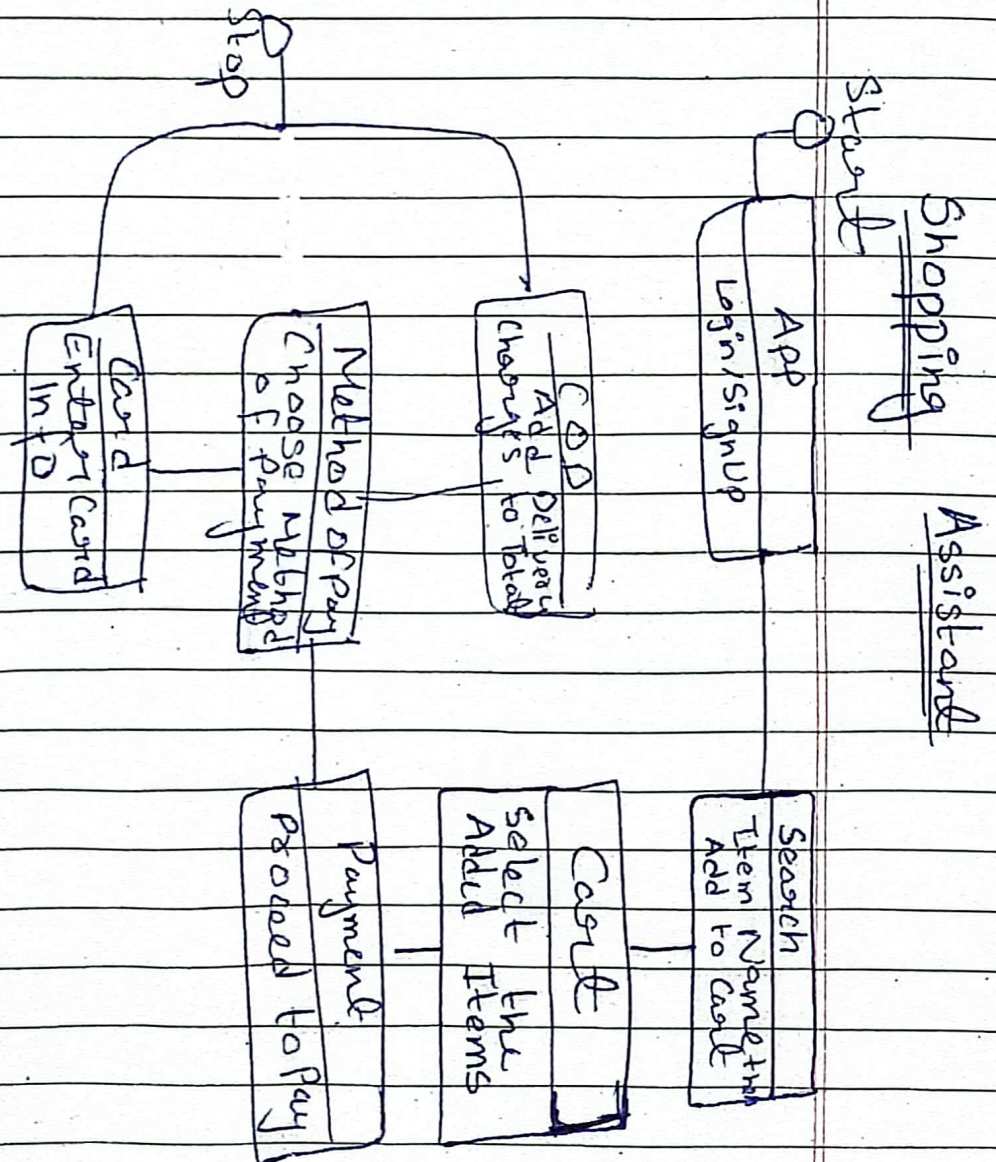 Shopping Assistant
Start
App
Login/SignUp
Search
Item Name then
Add to Cart
Cart
Select the
Added Items
Payment
Proceed to Pay
Method of Pay
Choose Method
of Payment
COD
Add Delivery
Charges to Total
Card
Enter Card
Info
Stop